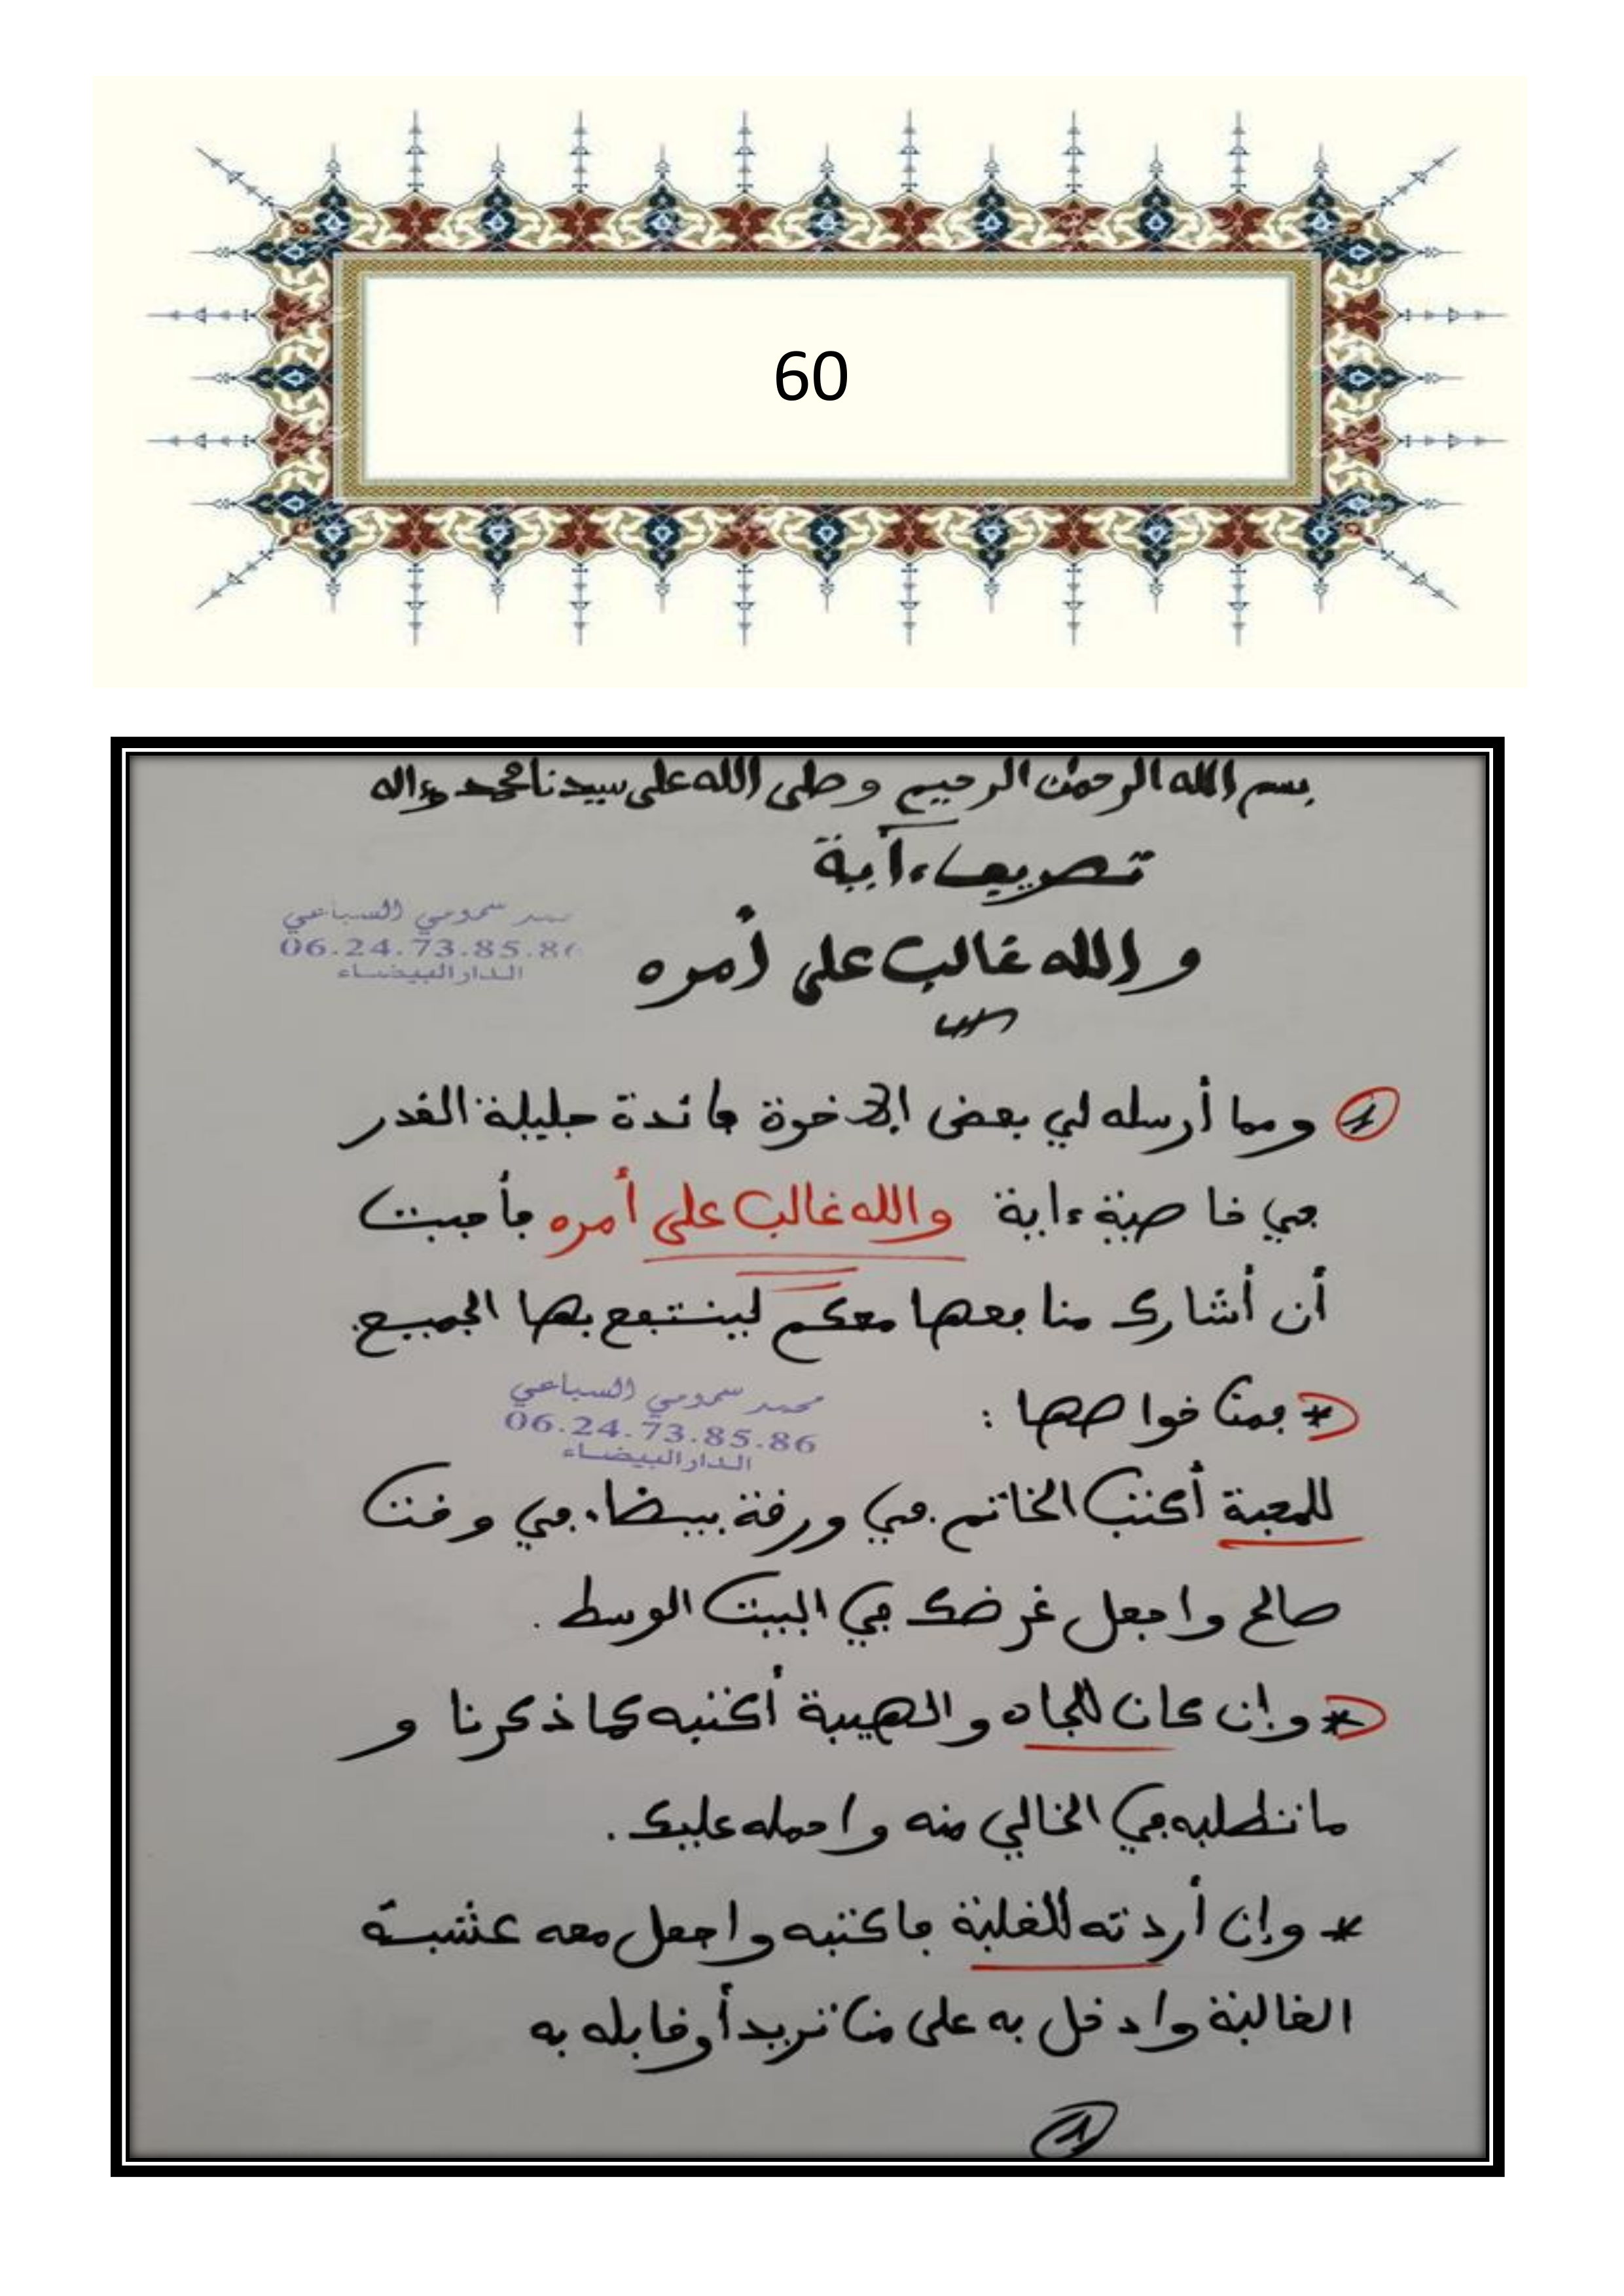 60
بسم الله الرحمن الرحيم وصلى الله على سيدنا محمد وءاله
تصريف ءاية
والله غالب على أمره
محمد سمومي السباعي
06.24.73.85.86
الدار البيضاء
1 ومما أرسله لي بعض الإخوة فائدة جليلة القدر
في خاصية ءاية والله غالب على أمره فأحببت
أن أشارك منافعها معكم لينتفع بها الجميع.
* فمن خواصها :
محمد سمومي السباعي
06.24.73.85.86
الدار البيضاء
للمحبة أكتب الخاتم في ورقة بيضاء في وقت
صالح واجعل غرضك في البيت الوسط .
* وإن كان للجاه والهيبة أكتبه كما ذكرنا و
ما تطلبه في الخالي منه واحمله عليك .
* وإن أردته للغلبة فاكتبه واجعل معه عشبة
الغالبة وادخل به على من تريد أو قابله به
1